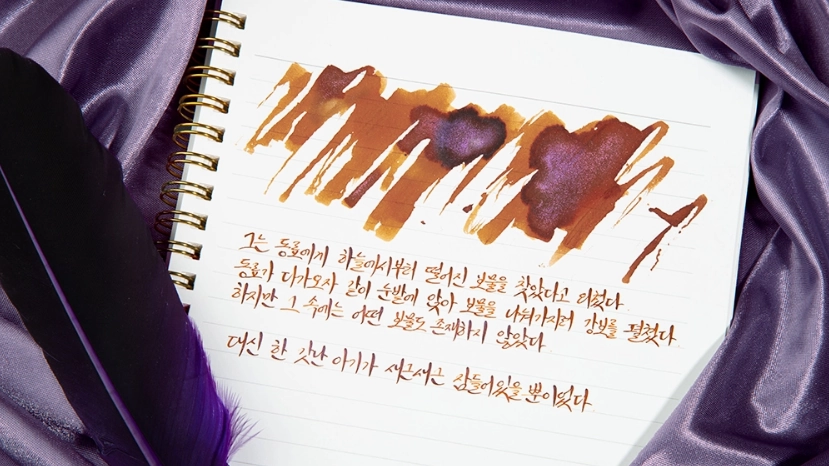 그는 동료에게 하늘에서부터 떨어진 보물을 찾았다고 외쳤다
동료가 다가오자 같이 눈밭에 앉아 보물을 나눠가지러 강보를 펼쳤다
하지만 그 속에는 어떤 보물도 존재하지 않았다
대신 한 갓난 아기가 새근새근 잠들어있을 뿐이었다